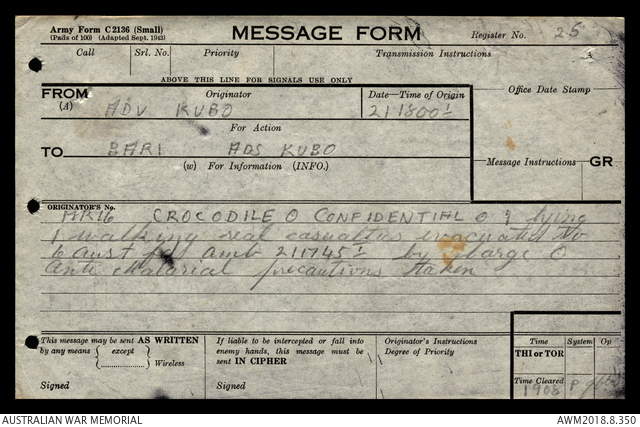 Army Form C2136 (Small)
(Pads of 100) (Adapted Sept. 1943)
MESSAGE FORM
Register No. 25
Call Srl. No. Priority Transmission Instructions
ABOVE THIS LINE FOR SIGNALS USE ONLY
FROM Originator Date—Time of Origin Office Date Stamp
(A) ADV KUBO 211800I
For Action
TO BARI ADS KUBO
(w) For Information (INFO.) Message Instructions GR
ORIGINATOR'S No.
MR16 CROCODILE O CONFIDENTIAL O 1 lying
1 walking real casualties evacuated to
6 aust fd amb 211745I by barge O
Anti Malarial precautions taken
This message may be sent AS WRITTEN
by any means except
Wireless
Signed
If liable to be intercepted or fall into
enemy hands, this message must be
sent IN CIPHER
Signed
Originator's Instructions
Degree of Priority
Time System Op
THI or TOR
Time Cleared
1908 P
AUSTRALIAN WAR MEMORIAL AWM2018.8.350